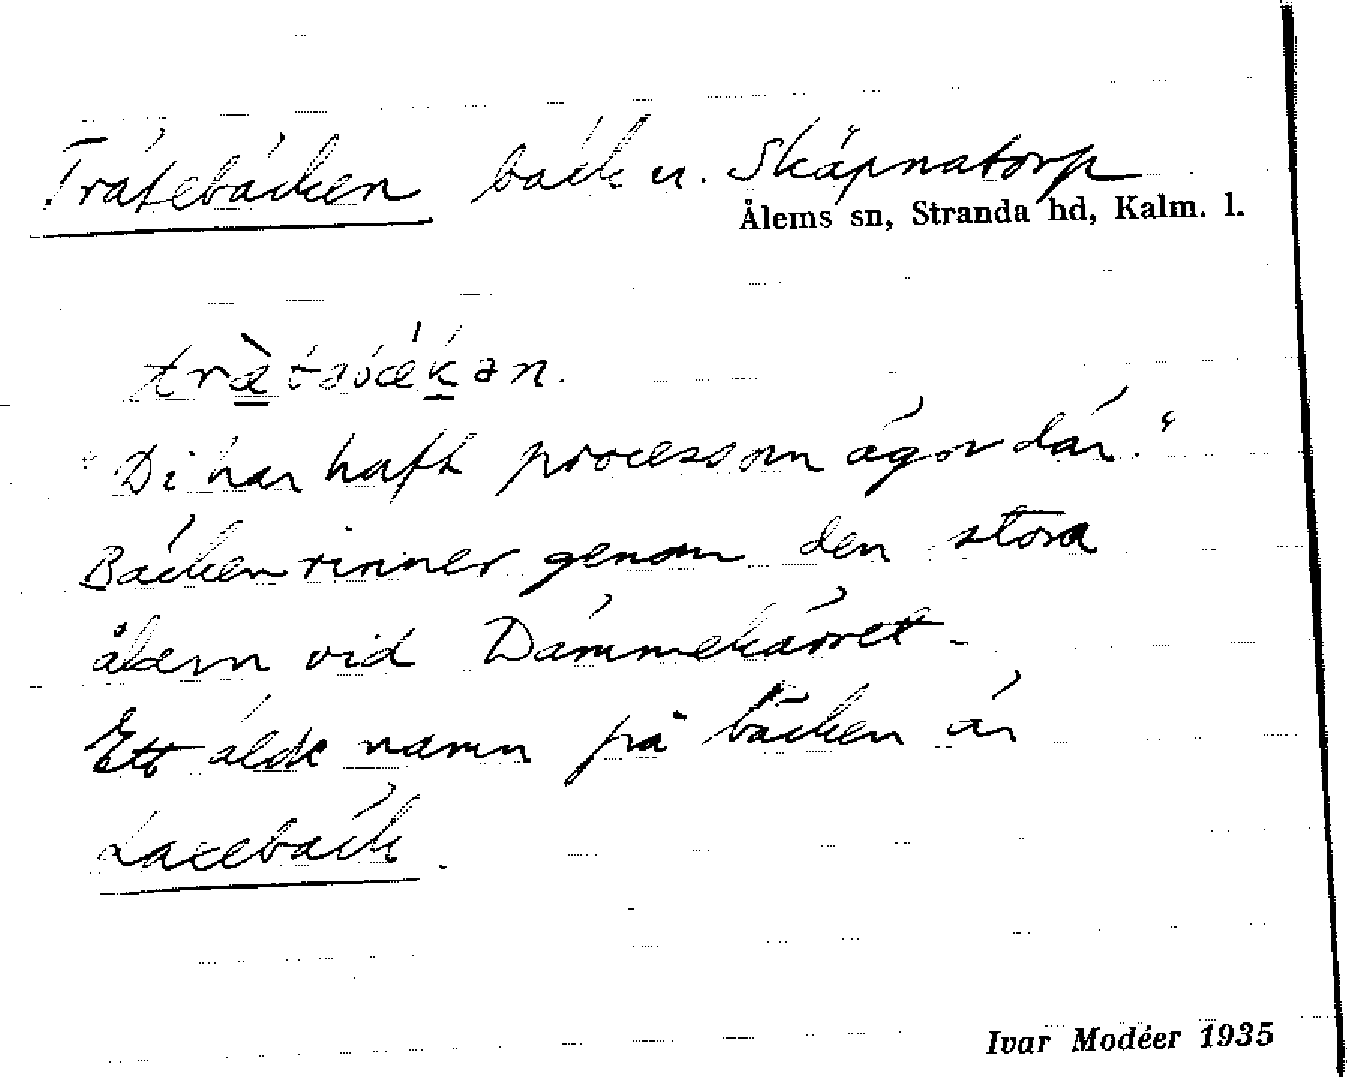 Trätebäcken bäck u. Skäpnatorp
Ålems sn, Stranda hd, Kalm. l.
"Di har haft process om ägor där."
Bäcken rinner genom den stora
åkern vid Dämmekärret.
Ett äldre namn på bäcken är
Laxebäck.
Ivar Modéer 1935